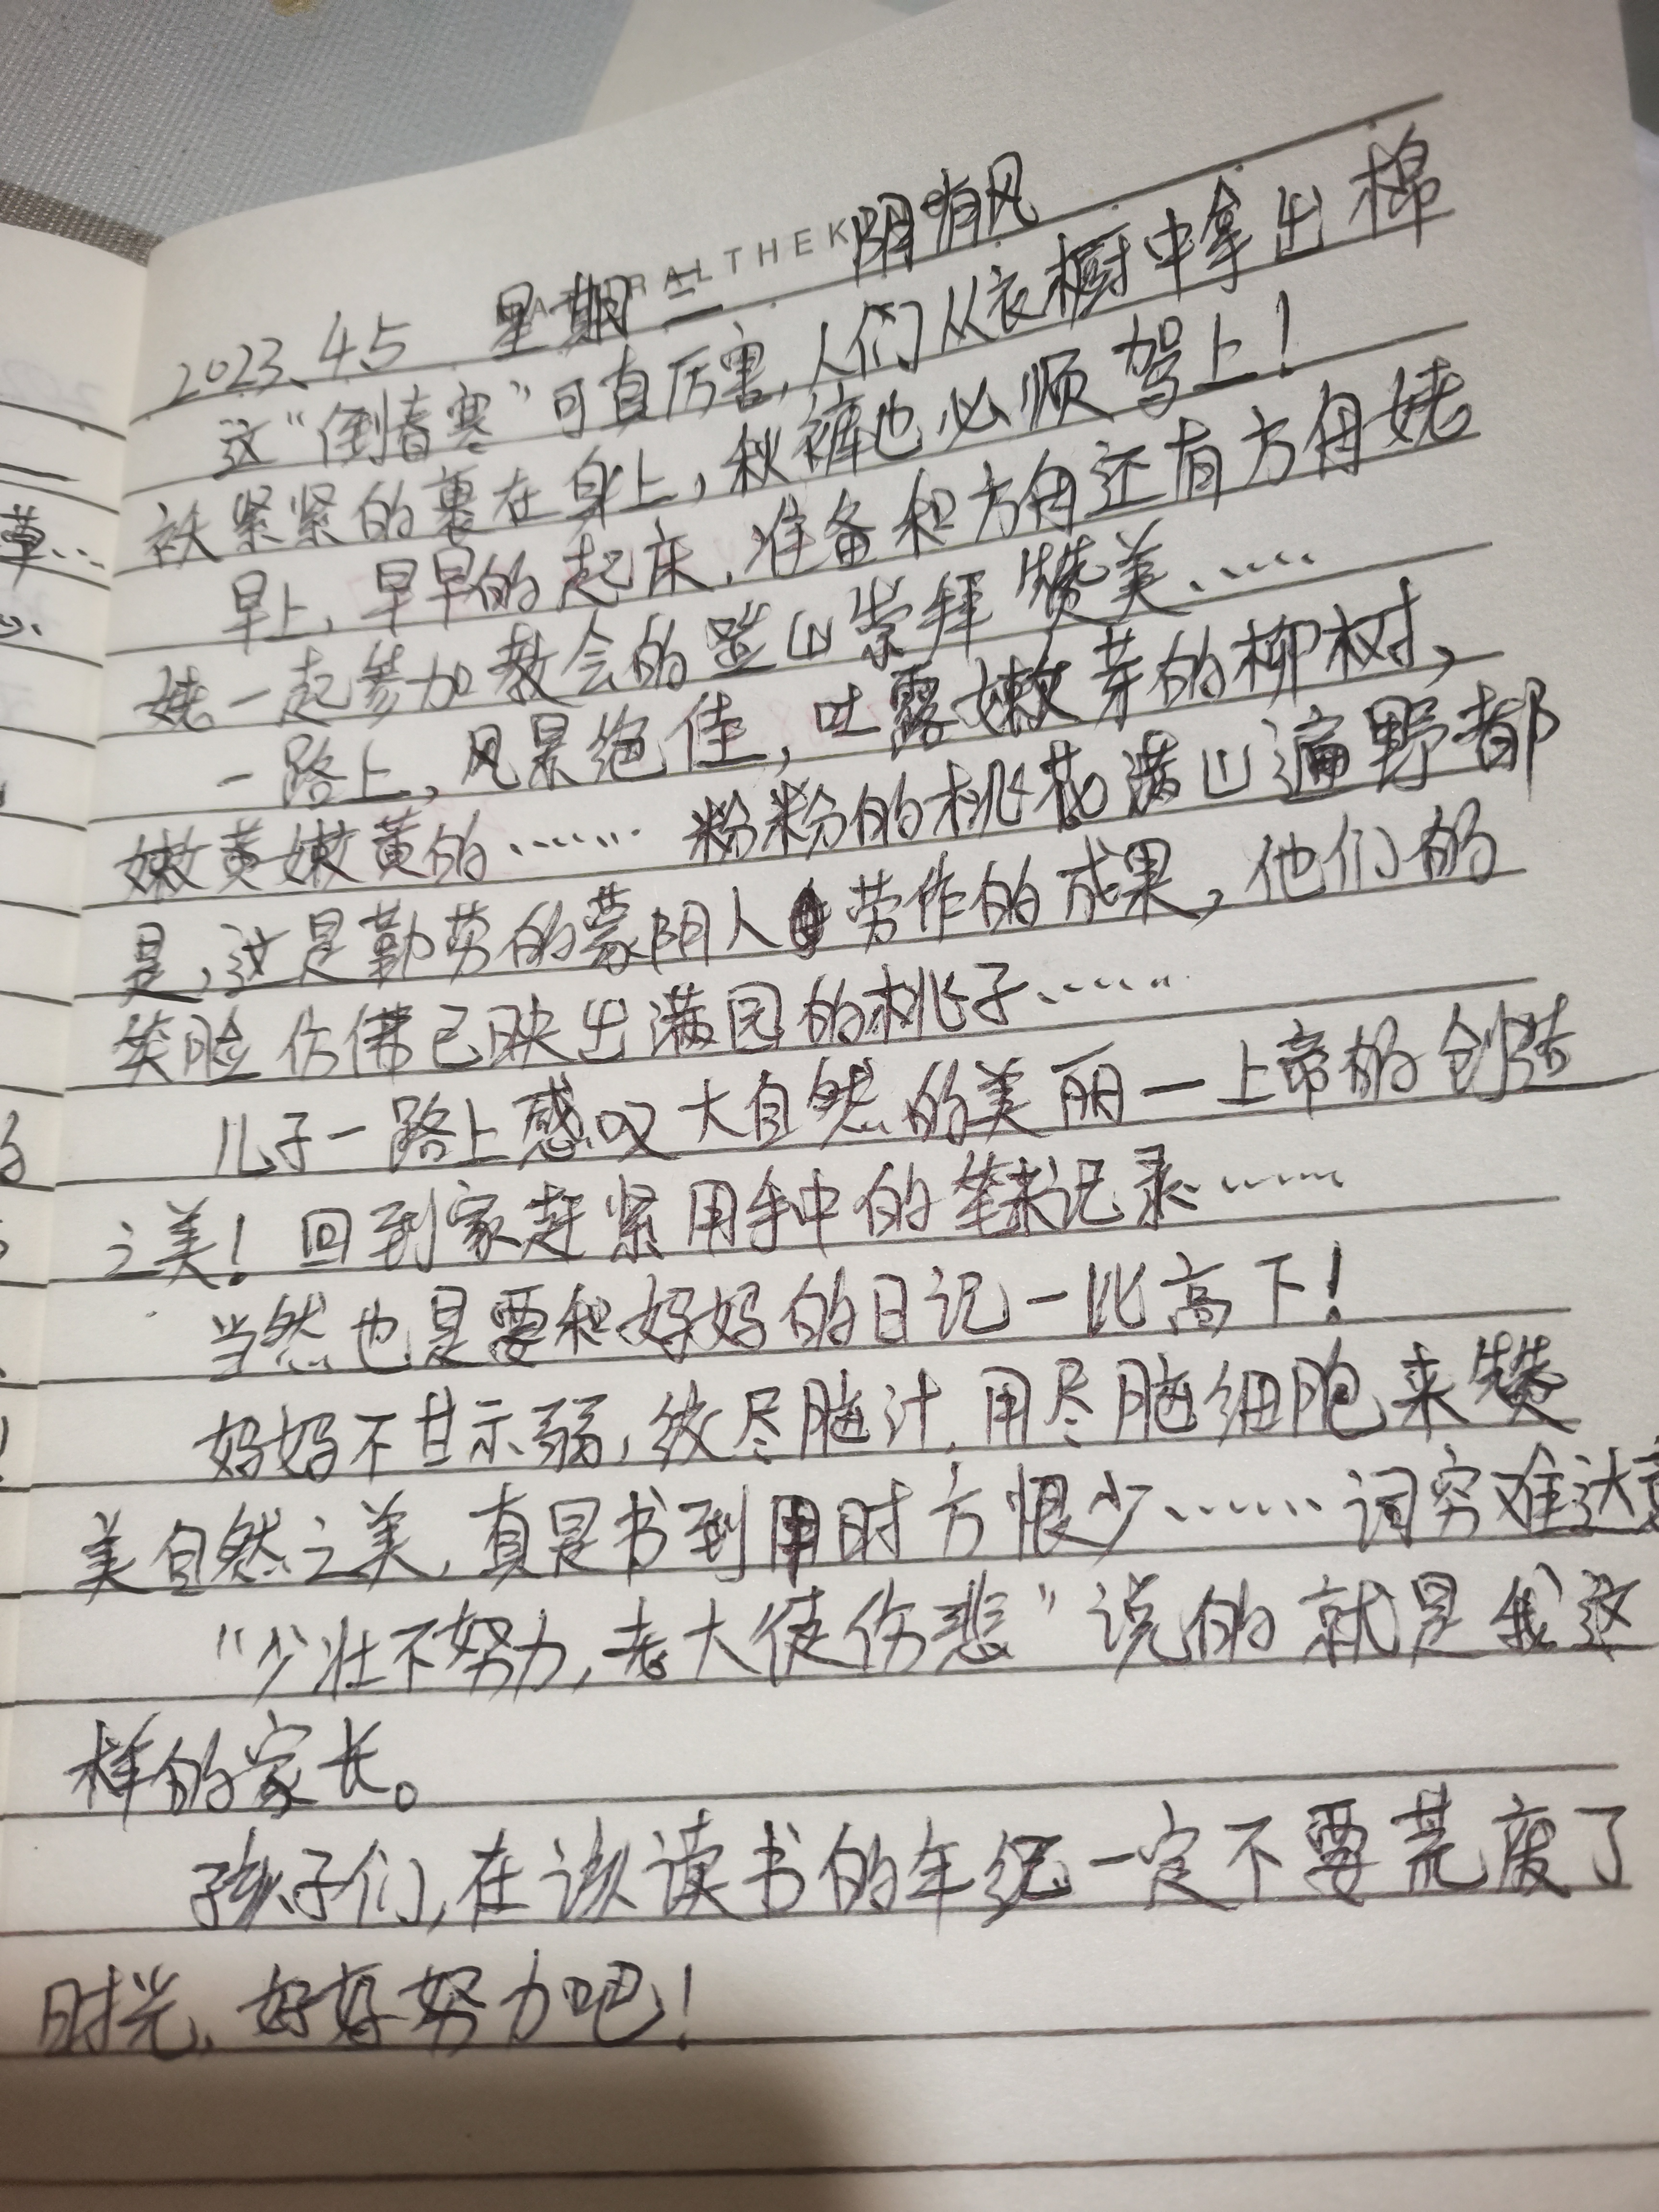 2023.4.5 星期二 阴有风
这“倒春寒”可真厉害，人们从衣橱中拿出棉
袄紧紧的裹在身上，秋裤也必须驾上！
早上，早早的起床，准备和方舟还有方舟姥
姥一起参加教会的登山崇拜赞美……
一路上，风景绝佳，吐露嫩芽的柳树，
嫩黄嫩黄的…… 粉粉的桃花满山遍野都
是，这是勤劳的蒙阴人劳作的成果，他们的
笑脸仿佛已映出满园的桃子……
儿子一路上感叹大自然的美丽一上帝的创造
之美！回到家赶紧用手中的笔来记录……
当然也是要和妈妈的日记一比高下！
妈妈不甘示弱，绞尽脑汁，用尽脑细胞来赞
美自然之美，真是书到用时方恨少……词穷难达意
“少壮不努力，老大徒伤悲”说的就是我这
样的家长。
孩子们，在该读书的年纪一定不要荒废了
时光，好好努力吧！